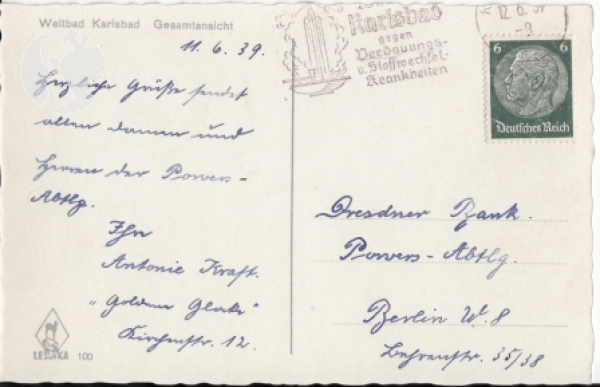 Weltbad Karlsbad Gesamtansicht
11. 6. 39.
Herzliche Grüße sendet
allen Damen und
Herren der Powers-
Abtlg.
Ihn
Antonie Kraft.
"Goldene Glocke"
Kirchenstr. 12.
LEDKA 100
Karlsbad
gegen
Verdauungs-
u. Stoffwechsel-
Krankheiten
12. 6. 39
6 6
Deutsches Reich
Dresdner Bank.
Powers-Abtlg.
Berlin W. 8
Behrenstr. 35/38